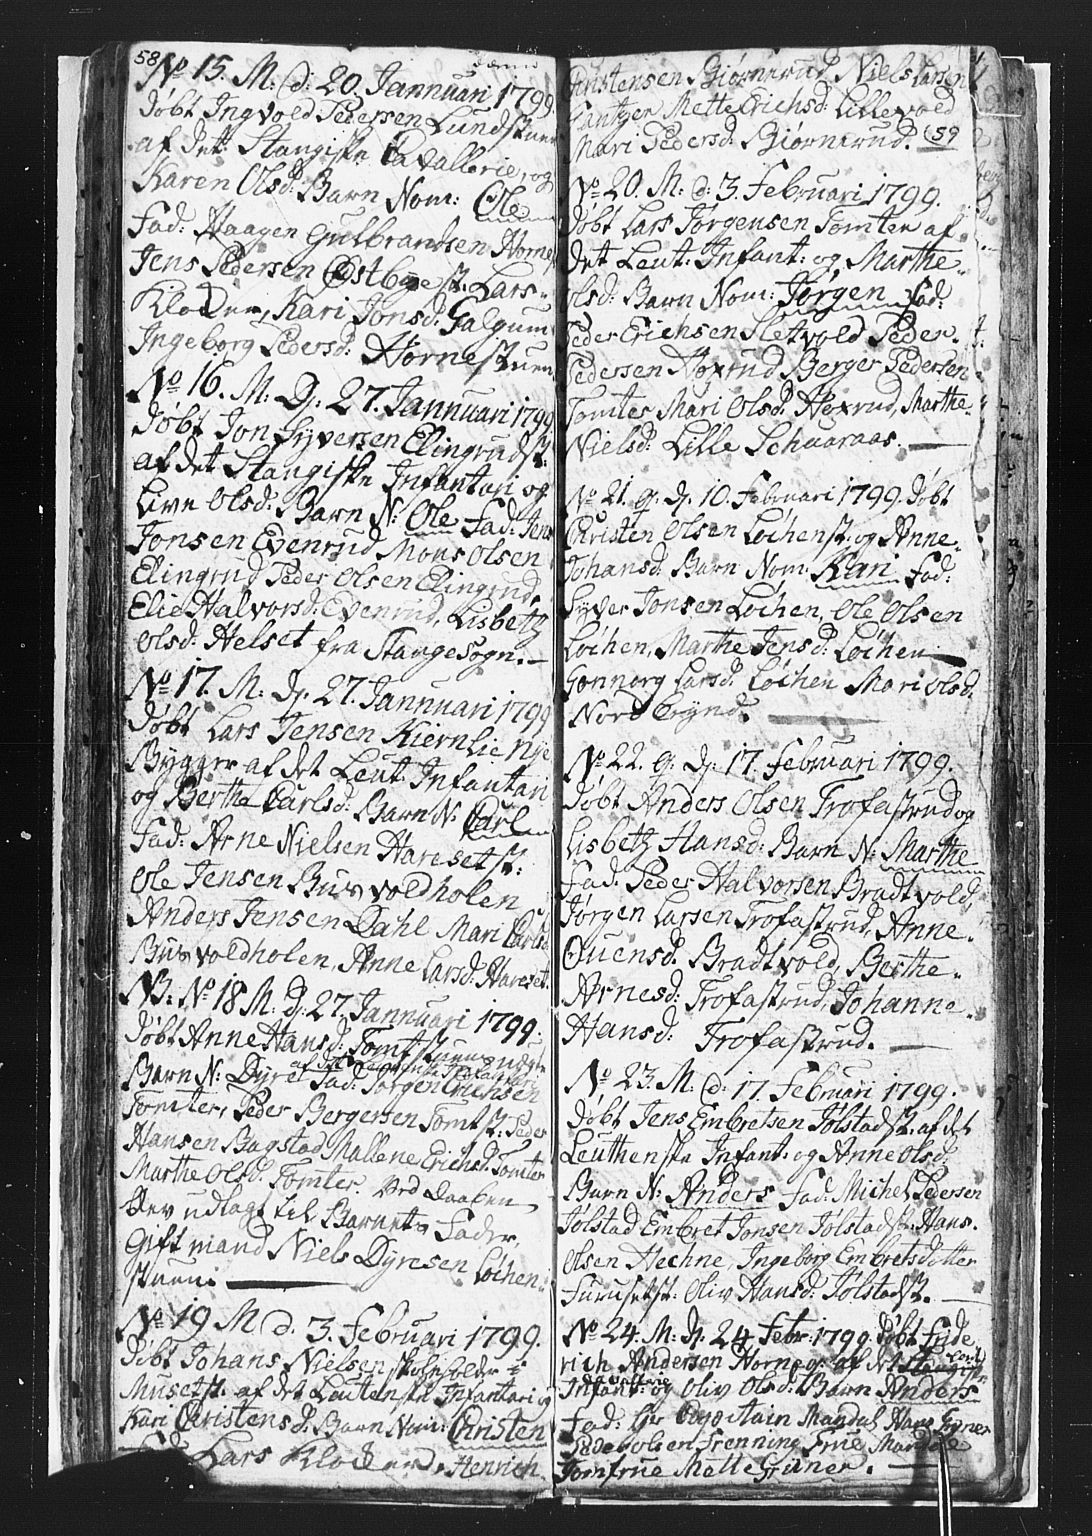 58
No 15. M: d: 20. Jannuari 1799
døbt Ingvold Pedersen Lundstuen
af det Stangiske Cavallerie, og
Karen Olsd: Barn Nom: Ole
Fad: Haagen Gulbrandsen Horne
Jens Pedersen Østbyest: Lars
Kloden, Kari Jonsd: Galgum
Ingeborg Pedersd: Hornestuen
No 16. M: Dp: 27. Jannuari 1799
døbt Jon Syversen Elingrudst:
af det Stangiske Infantari og
Live Olsd: Barn N: Ole Fad: Jens
Jonsen Evenrud Mons Olsen
Elingrud Peder Olsen Elingrud,
Elie Halvorsd: Evenrud, Lisbeth
Olsd: Helset fra Stangesogn.
No 17. M: Dp: 27. Jannuari 1799
døbt Lars Jensen Kiernlie Nye
Bygger af det Leut: Infantari
og Berthe Carlsd: Barn N: Carl
Fad: Arne Nielsen Haresetst:
Ole Jensen Burvoldholen
Anders Jensen Dahl Mari Carlsd:
Burvoldholen, Anne Larsd: Hareset.
NB: No 18 M: d: 27. Jannuari 1799.
døbt Anne Hansd: Tomtstuen uægte
af det Leutenske Infanteri
Barn N: Dyre Fad: Jørgen Erichsen
Tomter, Peder Bergersen Tomtst: Peder
Hansen Bagstad Mallene Erichsd: Tomter
Marthe Olsd: Tomter. Ved Daaben
blev udlagt til Barnets Fader,
Gift mand Niels Dyresen Løchen
stuen
No 19 M d: 3. Februari 1799.
Døbt Johans Nielsen Skoleholder i
Musetst: af det Leutenske Infantari og
Kari Christensd: Barn Nom: Christen
Fad: Lars Kloden, Henrich
Christensen Biørnerud, Niels Larsen
Gantzen Mette Erichsd: Lillevold
Mari Pedersd: Biørnerud. (59
No 20. M: d: 3. Februari 1799.
døbt Lars Jørgensen Tomten af
det Leut: Infant: og Marthe
Olsd: Barn Nom: Jørgen Fad:
Peder Erichsen Sletvold Peder
Pedersen Hoxrud Berger Pedersen
Tomter Mari Olsd: Hoxrud, Marthe
Nielsd: Lille Schaaraas.
No 21. g: Dp. 10. Februari 1799. døbt
Christen Olsen Løchenst: og Anne
Johansd: Barn Nom: Kari Fad:
Syver Jonsen Løchen, Ole Olsen
Løchen, Marthe Jensd: Løchen
Gønnorg Larsd: Løchen Mari Olsd:
Nord Grynd.
No 22. g: Dp: 17. Februari 1799.
døbt Anders Olsen Trofastrud og
Lisbeth Hansd: Barn N: Marthe
Fad: Peder Halvorsen Bradtvold,
Jørgen Larsen Trofastrud, Anne
Ouensd: Bradtvold, Berthe
Arnesd: Trofastrud, Johanne
Hansd: Trofastrud.
No 23. M: d: 17. Februari 1799.
døbt Jens Embretsen Jølstadst: af det
Leuthenske Infant: og Anne Olsd:
Barn N: Anders Fad: Michel Pedersen
Jølstad Embret Jonsen Jølstadst: Hans
Olsen Hechne, Ingeborg Embretsdotter
Furusetst: Oliv Hansd: Jølstadst.
No 24. M: Dp. 24 Febr. 1799. døbt Fride
rich Andersen Horne af det Stangiske
Cavallerie
og Oliv Olsd: Barn Anders
Fad: Hr Capitain Mandal Hans Gruner
Peder Olsen Frenning Frue Mandals
Jomfrue Mette Gruner.